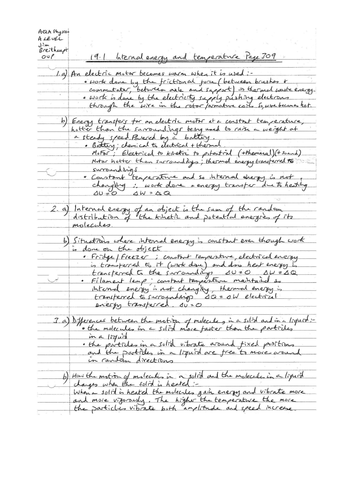 AQA Physics
A Level
Jim
Breithaupt
OUP
19.1 Internal energy and temperature Page 309
1.a) An electric motor becomes warm when it is used :-
• work done by the frictional force (between brushes &
commutator, between axle and support) → thermal waste energy.
• Work is done by the electricity supply pushing electrons
through the wire in the rotor/armature coils, wire becomes hot.
b) Energy transfers for an electric motor at a constant temperature,
hotter than the surroundings being used to raise a weight at
a steady speed. Powered by a battery.
• Battery; chemical to electrical + thermal
Motor ; Electrical to kinetic to potential (+thermal) (+sound)
Motor hotter than surroundings ; thermal energy transferred to
surroundings
• Constant temperature and so internal energy is not
changing ∴ work done = energy transfer due to heating
ΔU = 0 ΔW = ΔQ
2. a) Internal energy of an object is the sum of the random
distribution of the kinetic and potential energies of its
molecules
b) Situations where internal energy is constant even though work
is done on the object
• Fridge / Freezer ; constant temperature, electrical energy
is transferred to it (work done) and does heat energy is
transferred to the surroundings ΔU = 0 ΔW = ΔQ
• Filament lamp ; constant temperature maintained so
internal energy is not changing. Thermal energy is
transferred to surroundings ΔQ = ΔW electrical
energy transferred. ΔU = 0
3. a) Differences between the motion of molecules in a solid and in a liquid :-
• the molecules in a solid move faster than the particles
in a liquid
• the particles in a solid vibrate around fixed positions
and the particles in a liquid are free to move around
in random directions
b) How the motion of molecules in a solid and the molecules in a liquid
changes when the solid is heated :-
When a solid is heated the molecules gain energy and vibrate more
and more vigorously. The higher the temperature the more
the particles vibrate both amplitude and speed increase.